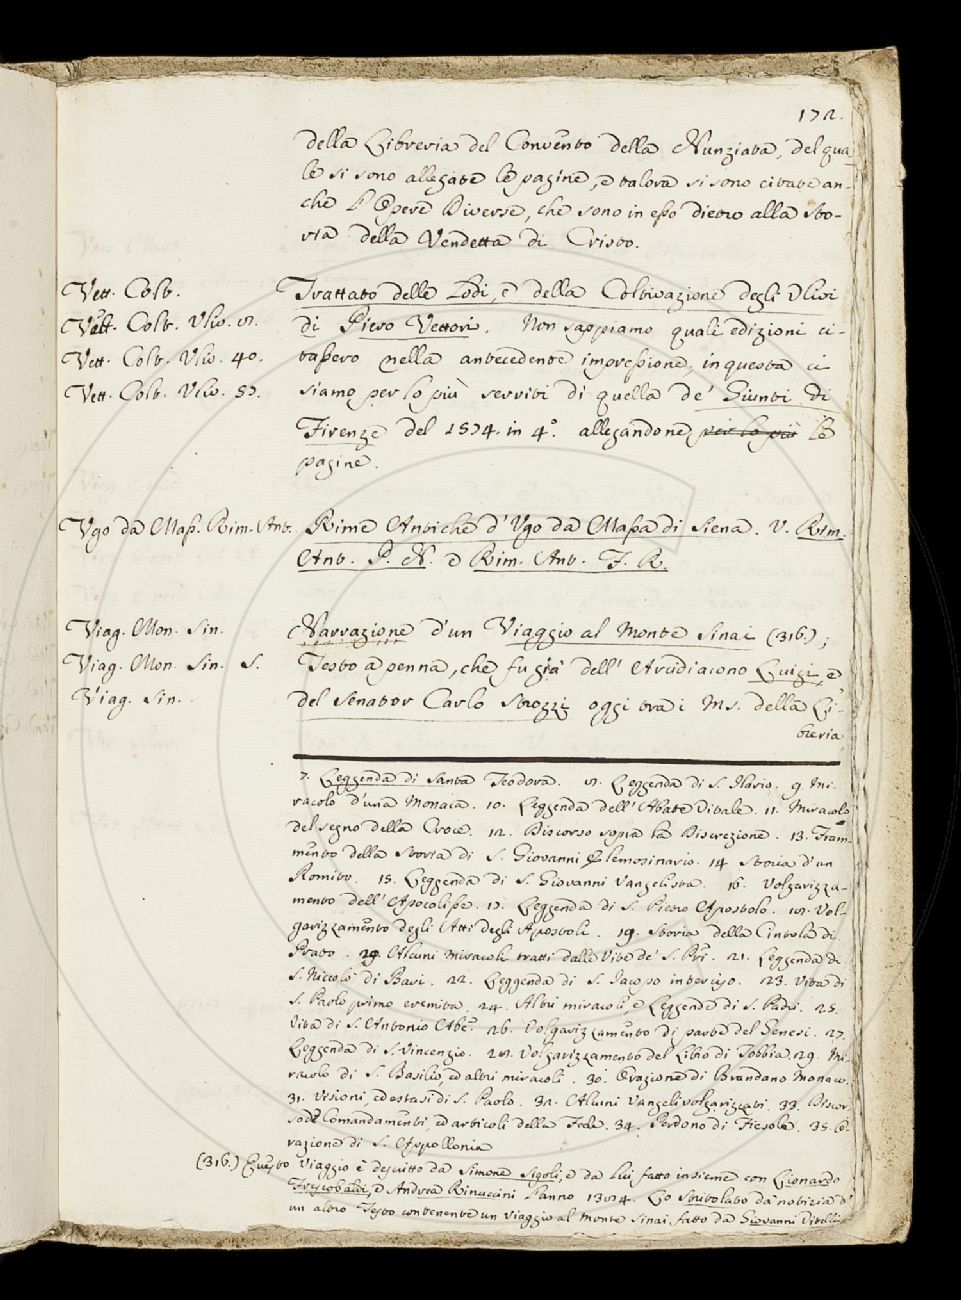 172.
della Libreria del Convento della Nunziata, del qua
le si sono allegate le pagine, e talora si sono citate an-
che l'Opere Diverse, che sono in esso dietro alla Sto-
ria della Vendetta di Cristo.
Vett. Colt. Trattato delle Lodi, e della Coltivazione degli Ulivi
Vett. Colt. Uliv. 8. di Piero Vettori. Non sappiamo quali edizioni ci-
Vett. Colt. Uliv. 40. tassero nella antecedente impressione, in questa ci
Vett. Colt. Uliv. 57. siamo per lo più serviti di quella de' Giunti di
Firenze del 1574. in 4°. allegandone per lo più le
pagine.
Ugo da Mass. Rim. Ant. Rime Antiche d'Ugo da Massa di Siena. V. Rim.
Ant. P. N. e Rim. Ant. F. R.
Viag. Mon. Sin. Narrazione d'un Viaggio al Monte Sinai (316.);
Viag. Mon. Sin. S. Testo a penna, che fu già dell'Arcidiacono Luigi, e
Viag. Sin. del Senator Carlo Strozzi oggi tra i Ms. della Li-
breria
7. Leggenda di Santa Teodora. 8. Leggenda di S. Ilario. 9. Mi-
racolo d'una Monaca. 10. Leggenda dell'Abate Vitale. 11. Miracolo
del segno della Croce. 12. Discorso sopra la Discrezione. 13. Fram-
mento della Storia di S. Giovanni Elemosinario. 14 Storia d'un
Romito. 15. Leggenda di S. Giovanni Vangelista. 16. Volgarizza-
mento dell'Apocalisse. 17. Leggenda di S. Pietro Apostolo. 18. Vol-
garizzamento degli Atti degli Apostoli. 19. Storia della Cintola di
Prato. 20. Alcuni miracoli tratti dalle Vite de' S. Pri. 21. Leggenda di
S. Niccolò di Bari. 22. Leggenda di S. Iacopo interciso. 23. Vita di
S. Paolo primo eremita. 24. Altri miracoli, e Leggende di S. Padri. 25.
Vita di S. Antonio Abe. 26. Volgarizzamento di parte del Genesi. 27.
Leggenda di S. Vincenzio. 28. Volgarizzamento del Libro di Tobbia. 29. Mi-
racolo di S. Basilio, ed altri miracoli. 30. Orazione di Brandano Monaco.
31. Visioni, ed estasi di S. Paolo. 32. Alcuni Vangeli volgarizzati. 33. Discor-
so de Comandamenti, ed articoli della Fede. 34. Perdono di Fiesole. 35. O-
razione di S. Appollonia
(316.) Questo Viaggio è descritto da Simone Sigoli, e da lui fatto insieme con Lionardo
Frescobaldi, e Andrea Rinuccini l'anno 1384. Lo Stritolato dà notizia d'
un altro Testo contenente un Viaggio al Monte Sinai, fatto da Giovanni